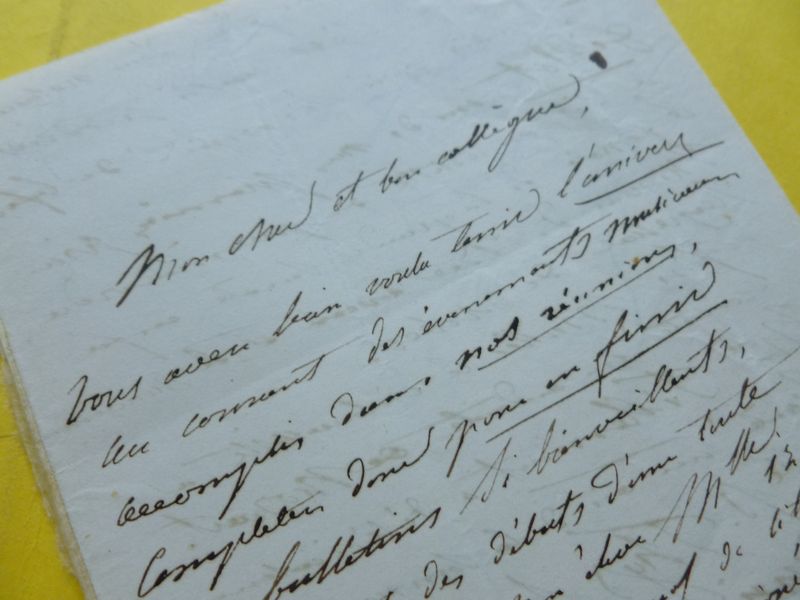 Mon cher et bon collègue,
Vous avez bien voulu tenir l'univers
au courant des évenements musicaux
accomplis dans nos réunions,
Completez donc pour en finir
bulletins si bienveillants,
des débuts d'une toute
chez Mlle
de